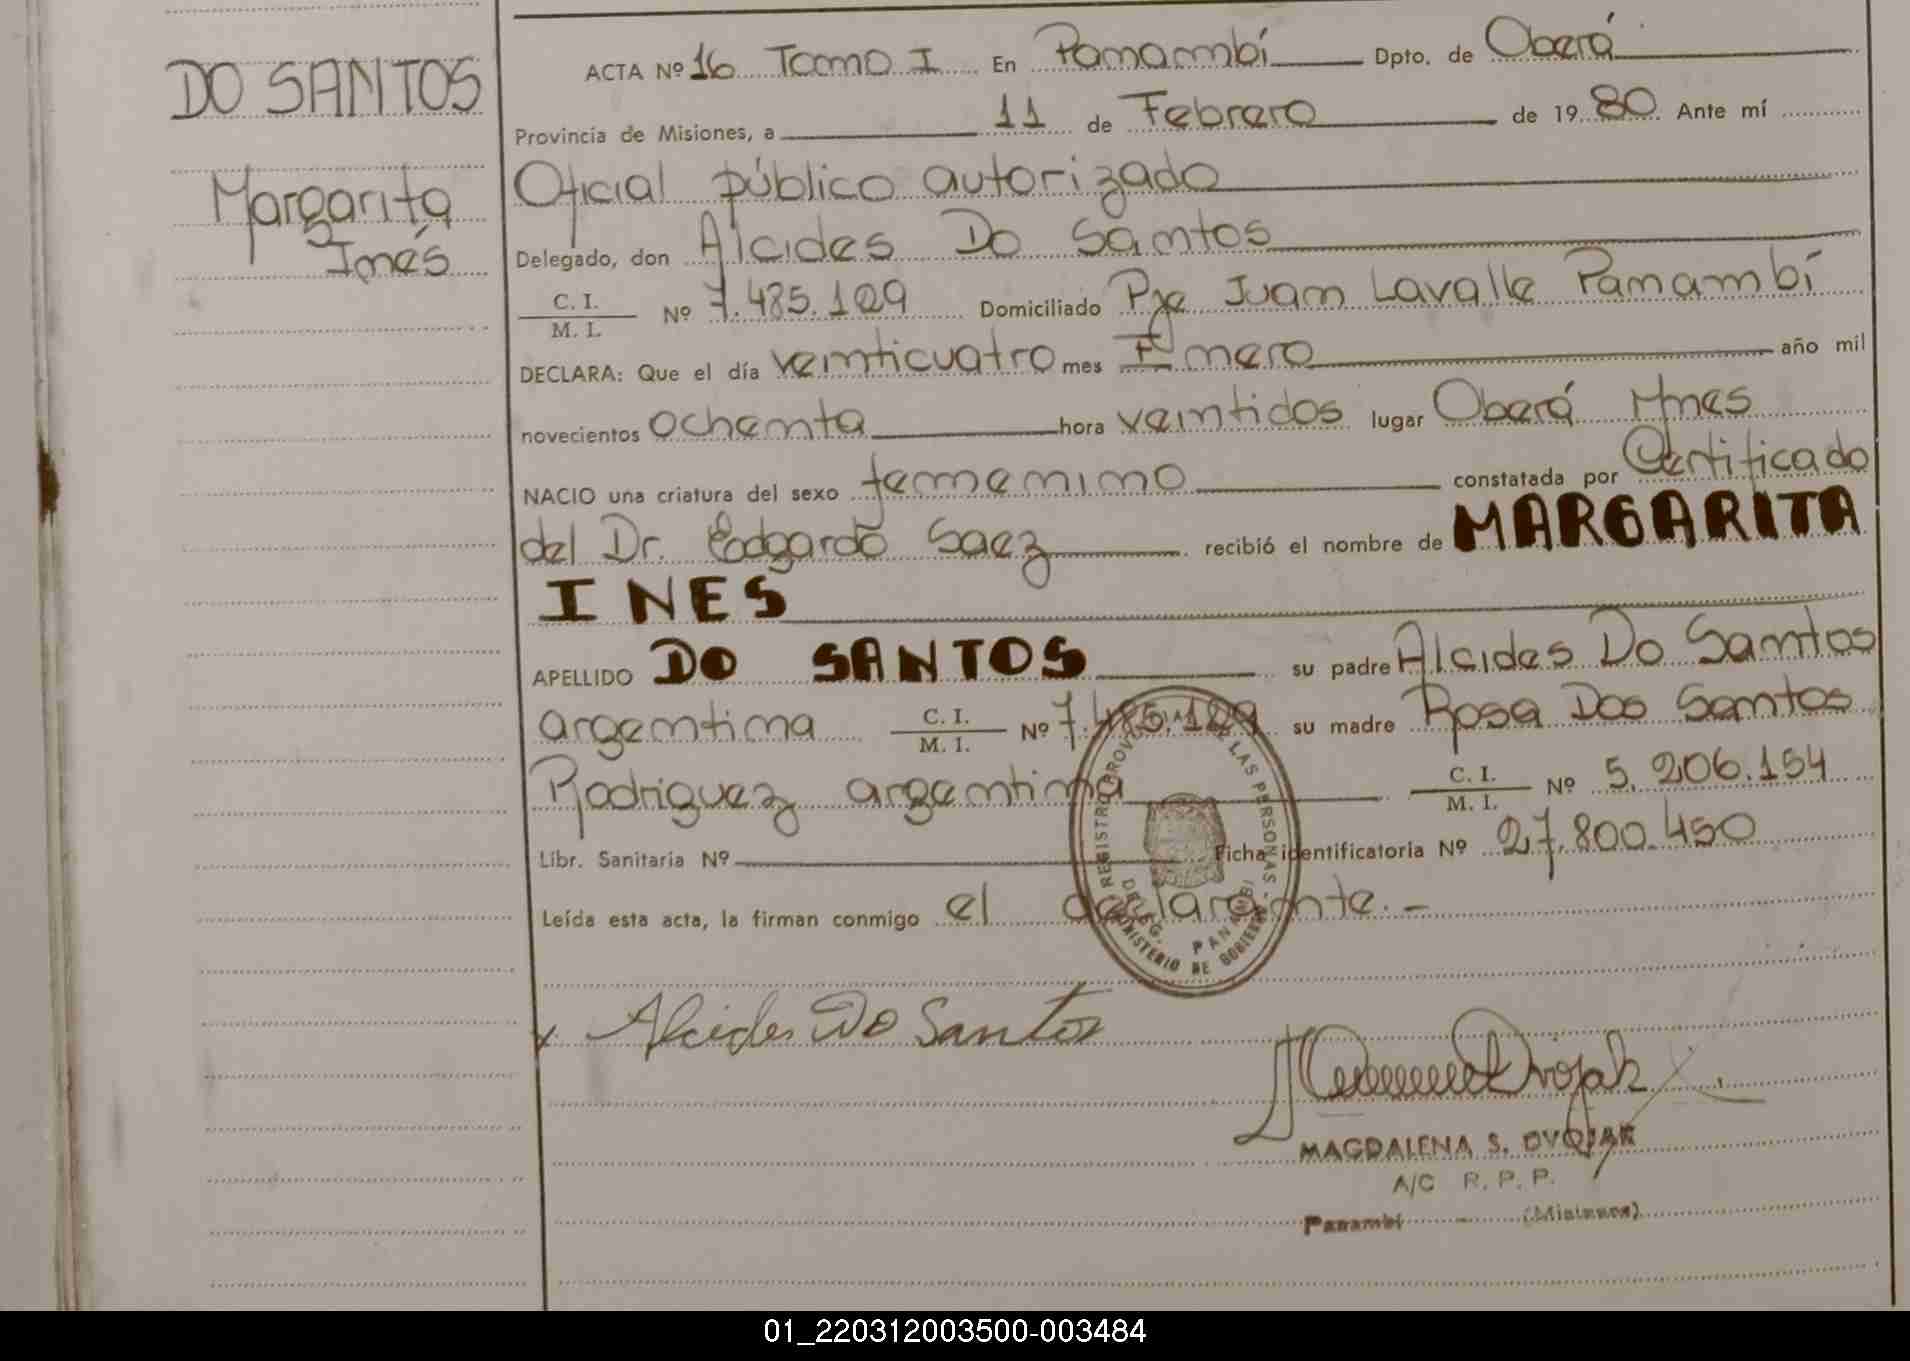 DO SANTOS
Margarita
Inés
ACTA Nº 16 Tomo I En Panambí Dpto. de Oberá
Provincia de Misiones, a 11 de Febrero de 19 80. Ante mí
Oficial público autorizado
Delegado, don Alcides Do Santos
C. I.
M. I. Nº 7.485.129 Domiciliado Pje Juan Lavalle Panambí
DECLARA: Que el día veinticuatro mes Enero año mil
novecientos ochenta hora veintidos lugar Oberá Mnes
NACIO una criatura del sexo femenino constatada por Certificado
del Dr. Edgardo Saez recibió el nombre de MARGARITA
INES
APELLIDO DO SANTOS su padre Alcides Do Santos
argentina C. I. M. I. Nº 7.485.129 su madre Rosa Dos Santos
Rodriguez argentina C. I. M. I. Nº 5.206.154
Libr. Sanitaria Nº Ficha identificatoria Nº 27.800.450
Leída esta acta, la firman conmigo el declarante.-
REGISTRO PROVINCIAL DE LAS PERSONAS
DELEG. PANAMBI
MINISTERIO DE GOBIERNO
x Alcides Do Santos
Dvojak
MAGDALENA S. DVOJAK
A/C R. P. P.
Panambí (Misiones)
01_220312003500-003484